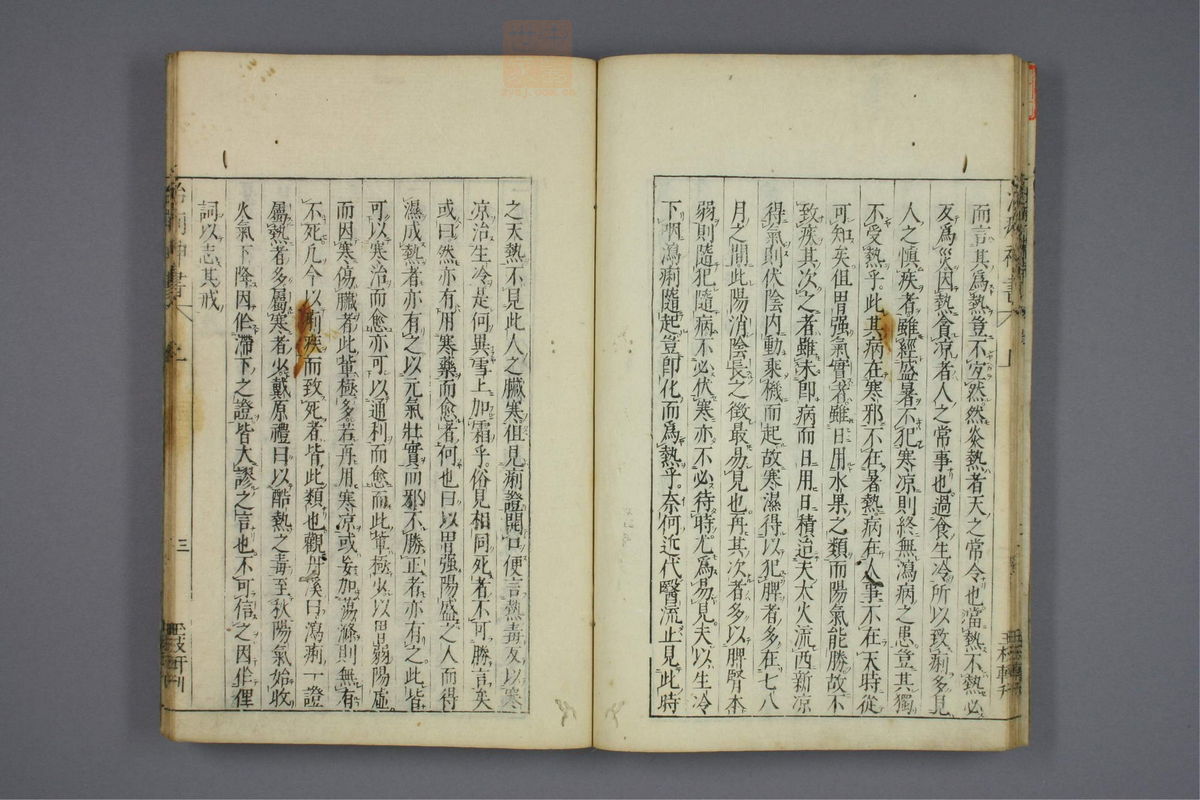 而言其爲熱豈不宜然然炎熱者天之常令也當熱不熱必
反爲災因熱貪凉者人之常事也過食生冷所以致痢多見
人之慎疾者雖經盛暑不犯寒凉則終無瀉病之患豈其獨
不受熱乎此其病在寒邪不在暑熱病在人事不在天時從
可知矣但胃强氣實者雖日用水果之類而陽氣能勝故不
致疾其次之者雖未即病而日用日積迨夫大火流西新凉
得氣則伏陰内動乘機而起故寒濕得以犯脾者多在七八
月之間此陽消陰長之徵最易見也再其次者多以脾腎本
弱則隨犯隨病不必伏寒亦不必待時尤爲易見夫以生冷
下咽瀉痢隨起豈即化而爲熱乎奈何近代醫流止見此時
之天熱不見此人之臟寒但見痢證開口便言熱毒反以寒
凉治生冷是何異雪上加霜乎俗見相同死者不可勝言矣
或曰然亦有用寒藥而愈者何也曰以胃强陽盛之人而得
濕成熱者亦有之以元氣壯實而邪不勝正者亦有之此皆
可以寒治而愈亦可以通利而愈而此輩極少以胃弱陽虛
而因寒傷臟者此輩極多若再用寒凉或妄加蕩滌則無有
不死凡今以痢疾而致死者皆此類也觀丹溪曰瀉痢一證
屬熱者多屬寒者少戴原禮曰以酷熱之毒至秋陽氣始收
火氣下降因作滯下之證皆大謬之言也不可信之因作俚
詞以志其戒
三